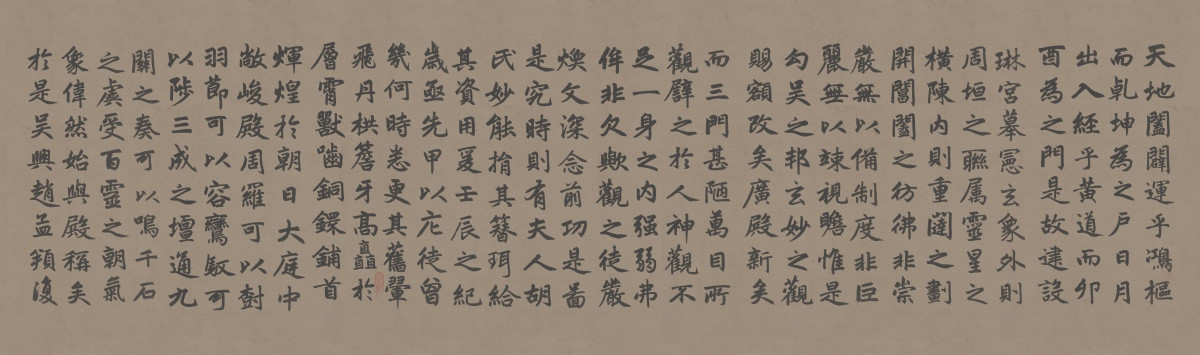 天地闔闢運乎鴻樞
而乹坤為之戶日月
出入經乎黃道而卯
酉為之門是故建設
琳宮摹憲玄象外則
周垣之聯属靈星之
橫陳內則重闥之劃
開閶闔之彷彿非崇
嚴無以備制度非巨
麗無以竦視瞻惟是
勾吳之邦玄妙之觀
賜額改矣廣殿新矣
而三門甚陋萬目所
觀譬之於人神觀不
足一身之內强弱弗
侔非欠歟觀之徒嚴
煥文深念前功是啚
是究時則有夫人胡
氏妙能捐其簪珥給
其資用爰壬辰之紀
歲亟先甲以庀徒曾
幾何時悉更其舊翬
飛丹栱簷牙高矗於
層霄獸嚙銅鐶鋪首
輝煌於朝日大庭中
敞峻殿周羅可以樹
羽節可以容鸞馭可
以陟三成之壇通九
關之奏可以鳴千石
之虡受百靈之朝氣
象偉然始與殿稱矣
於是吳興趙孟頫復